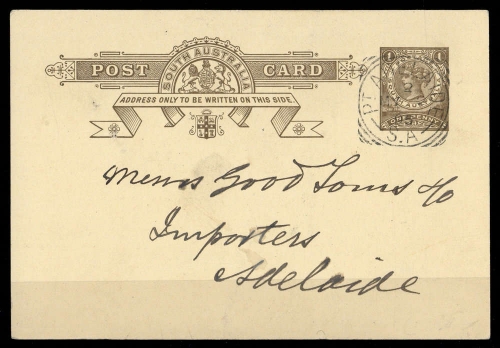 SOUTH AUSTRALIA
POST CARD
ADDRESS ONLY TO BE WRITTEN ON THIS SIDE.
1 1
SOUTH AUSTRALIA
ONE PENNY
PT A
S.A
Messrs Good Toms & Co
Importers
Adelaide